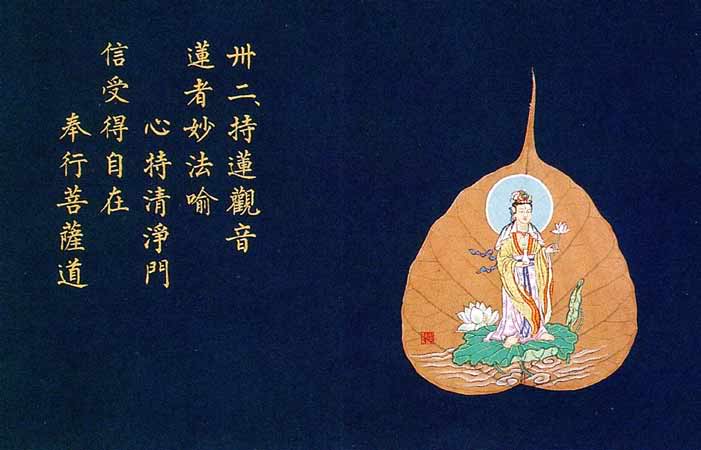 卅二、持蓮觀音
蓮者妙法喻
心持清淨門
信受得自在
奉行菩薩道